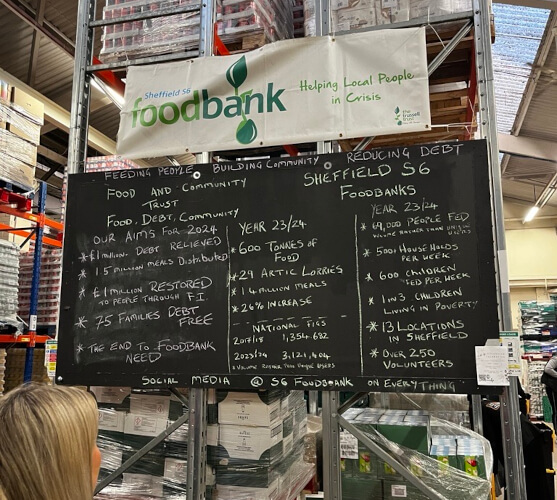 Sheffield S6
foodbank
Helping Local People
in Crisis
the trussell trust
FEEDING PEOPLE BUILDING COMMUNITY REDUCING DEBT
FOOD AND COMMUNITY
TRUST
FOOD, DEBT, COMMUNITY
OUR AIMS FOR 2024
* £1 MILLION DEBT RELIEVED
* 1.5 MILLION MEALS DISTRIBUTED
* £1 MILLION RESTORED
TO PEOPLE THROUGH F.I.
* 75 FAMILIES DEBT
FREE
* THE END TO FOODBANK
NEED
YEAR 23/24
* 600 TONNES OF
FOOD
* 29 ARTIC LORRIES
* 1.4 MILLION MEALS
* 26% INCREASE
NATIONAL FIGS
2017/18 1,354,682
2023/24 3,121,404
SHEFFIELD S6
FOODBANKS
YEAR 23/24
* 69,000 PEOPLE FED
VOLUME RATHER THAN UNIQUE
* 500+ HOUSE HOLDS
PER WEEK
* 600 CHILDREN
FED PER WEEK
* 1 IN 3 CHILDREN
LIVING IN POVERTY
* 13 LOCATIONS
IN SHEFFIELD
* OVER 250
VOLUNTEERS
SOCIAL MEDIA @ S6 FOODBANK ON EVERYTHING